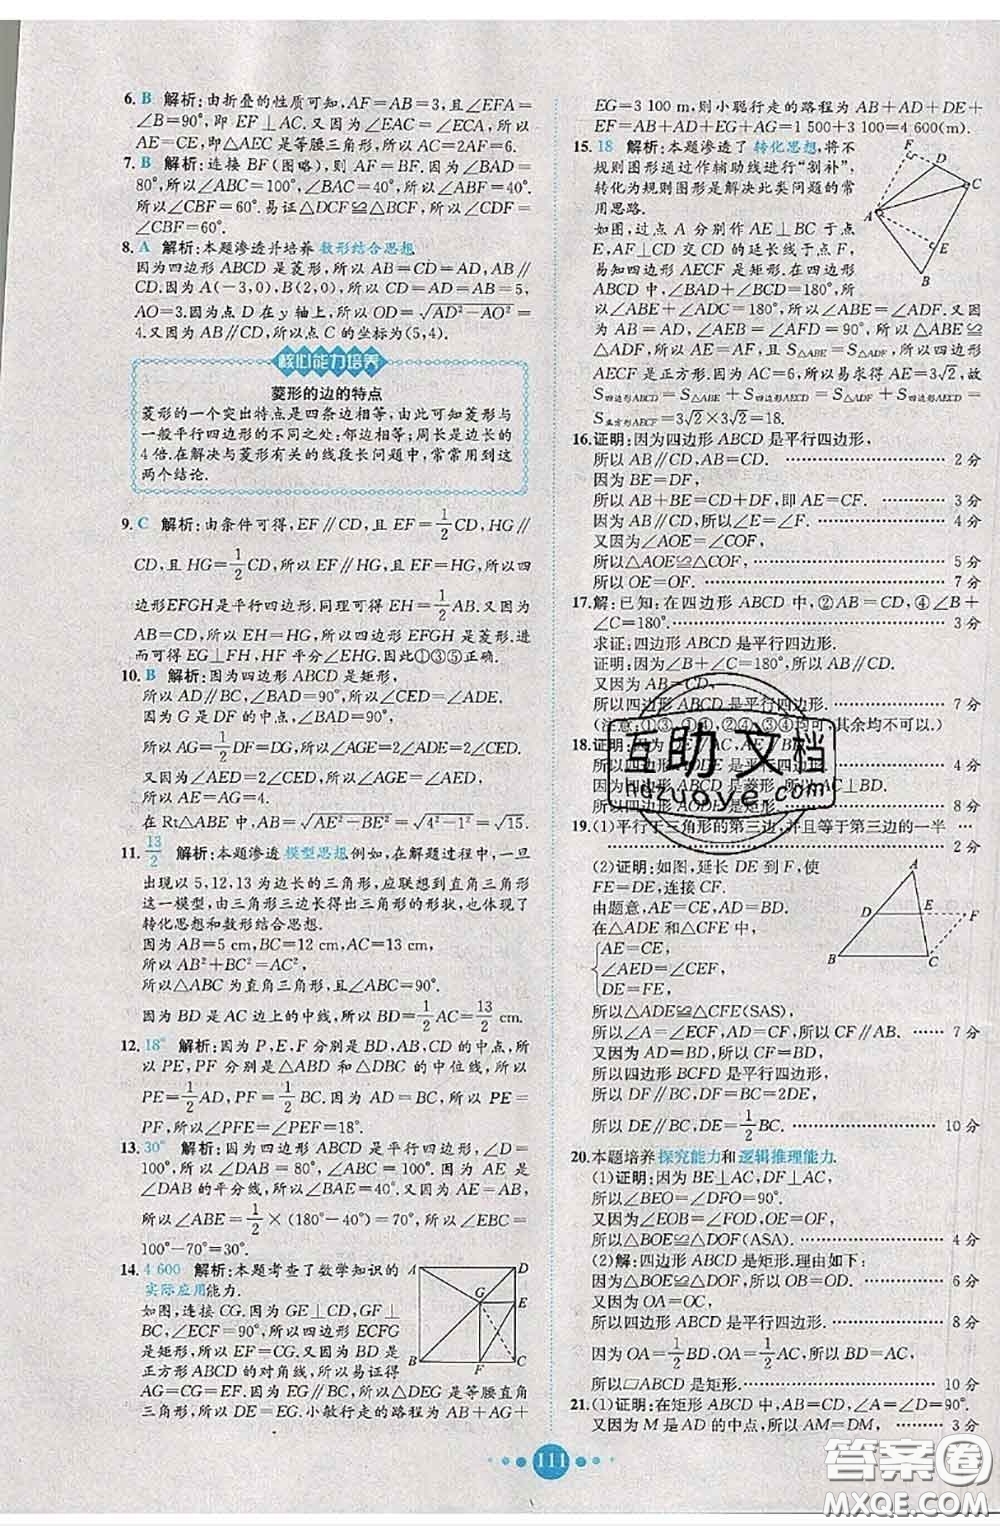 6. B 解析:由折叠的性质可知,AF=AB=3,且∠EFA=
∠B=90°,即 EF⊥AC.又因为∠EAC=∠ECA,所以
AE=CE,即△AEC是等腰三角形,所以AC=2AF=6.
7. B 解析:连接 BF(图略),则 AF=BF.因为∠BAD=
80°,所以∠ABC=100°,∠BAF=∠ABF=40°.
所以∠CBF=60°.易证△DCF≌△CBF,所以∠CDF=
∠CBF=60°.
8. A 解析:本题渗透并培养 数形结合思想
因为四边形 ABCD 是菱形,所以 AB=CD=AD,AB∥
CD.因为 A(-3,0),B(2,0),所以 CD=AD=AB=5,
AO=3.因为点 D 在 y 轴上,所以 OD=√(AD²-AO²)=
4.又因为 AB∥CD,所以点 C 的坐标为(5,4).
核心能力培养
菱形的边的特点
菱形的一个突出特点是四条边相等,由此可知菱形与
一般平行四边形的不同之处:邻边相等;周长是边长的
4倍.在解决与菱形有关的线段长问题中,常常用到这
两个结论.
9. C 解析:由条件可得,EF∥CD,且 EF=1/2CD,HG∥
CD,且 HG=1/2CD,所以 EF∥HG,EF=HG,所以四
边形EFGH是平行四边形.同理可得 EH=1/2AB.又因为
AB=CD,所以 EH=HG,所以四边形 EFGH 是菱形.进
而可得 EG⊥FH,HF 平分∠EHG.因此①③⑤正确.
10. B 解析:因为四边形 ABCD 是矩形,
所以 AD∥BC,∠BAD=90°,所以∠CED=∠ADE.
因为 G 是 DF 的中点,∠BAD=90°,
所以 AG=1/2DF=DG,所以∠AGE=2∠ADE=2∠CED
又因为∠AED=2∠CED,所以∠AGE=∠AED,
所以 AE=AG=4.
在 Rt△ABE 中,AB=√(AE²-BE²)=√(4²-1²)=√15.
11. 13/2 解析:本题渗透 模型思想.例如,在解题过程中,一旦
出现以 5,12,13 为边长的三角形,应联想到直角三角形
这一模型,由三角形三边长得出三角形的形状,也体现了
转化思想和数形结合思想.
因为 AB=5 cm,BC=12 cm,AC=13 cm,
所以 AB²+BC²=AC²,
所以△ABC 为直角三角形,且∠ABC=90°.
因为 BD 是 AC 边上的中线,所以 BD=1/2AC=13/2 cm.
12. 18° 解析:因为 P,E,F 分别是 BD,AB,CD 的中点,所
以 PE,PF 分别是△ABD 和△DBC 的中位线,所以
PE=1/2AD,PF=1/2BC.因为 AD=BC,所以 PE=
PF,所以∠PFE=∠PEF=18°.
13. 30° 解析:因为四边形 ABCD 是平行四边形,∠D=
100°,所以∠DAB=80°,∠ABC=100°.因为 AE 是
∠DAB的平分线,所以∠BAE=40°.又因为AE=AB,
所以∠ABE=1/2×(180°-40°)=70°,所以∠EBC=
100°-70°=30°.
14. 4 600 解析:本题考查了数学知识的
实际应用能力.
如图,连接 CG.因为 GE⊥CD,GF⊥
BC,∠FCE=90°,所以四边形 ECFG
是矩形,所以 EF=CG.又因为 BD 是
正方形ABCD的对角线,所以易证得
AG=CG=EF.因为∠BDC=45°,所以△DEG 是等腰直角三角
形,所以 DE=GE.小敏行走的路程为 AB+AG+
A
D
G
E
B
F
C
EG=3 100 m,则小聪行走的路程为 AB+AD+DE+
EF=AB+AD+EG+AG=1 500+3 100=4 600(m).
15. 18 解析:本题渗透了 转化思想,将不
规则图形通过作辅助线进行“割补”,
转化为规则图形是解决此类问题的常
用思路.
如图,过点 A 分别作 AE⊥BC 于点
E,AF⊥CD 交 CD 的延长线于点 F,
易知四边形 AECF 是矩形.在四边形
ABCD中,∠BAD+∠BCD=180°,所
以∠ABC+∠ADC=180°,所以∠ABE=∠ADF.又因
为 AB=AD,∠AEB=∠AFD=90°,所以△ABE≌
△ADF,所以 AE=AF,且 S△ABE=S△ADF,所以四边形
AECF 是正方形.因为 AE=3√2,所以 AF=3√2,故
S四边形ABCD=S△ABE+S四边形AECD=S△ADF+S四边形AECD=
S正方形AECF=3√2×3√2=18.
F
D
C
A
E
B
16. 证明:因为四边形 ABCD 是平行四边形,
所以 AB∥CD,AB=CD. 2 分
因为 BE=DF,
所以 AB+BE=CD+DF,即 AE=CF. 3 分
因为 AB∥CD,所以∠E=∠F. 4 分
又因为∠AOE=∠COF,
所以△AOE≌△COF, 5 分
所以 OE=OF. 7 分
17. 解:已知:在四边形 ABCD 中,②AB=CD,④∠B+
∠C=180°. 3 分
求证:四边形 ABCD 是平行四边形.
证明:因为∠B+∠C=180°,所以 AB∥CD.
又因为 AB=CD,
所以四边形 ABCD 是平行四边形. 7 分
(注意:①③,①④,②④,③④均可,其余均不可以.)
18. 证明:因为 DE∥AC,AE∥BD,
所以四边形 AODE 是平行四边形. 4 分
因为四边形 ABCD 是菱形,所以 AC⊥BD,
所以四边形 AODE 是矩形. 8 分
19. (1)平行于三角形的第三边,并且等于第三边的一半
2 分
(2)证明:如图,延长 DE 到 F,使
FE=DE,连接 CF.
由题意,AE=CE,AD=BD.
在△ADE 和△CFE 中,
AE=CE,
∠AED=∠CEF,
DE=FE,
A
D
E
F
B
C
所以△ADE≌△CFE(SAS),
所以∠A=∠ECF,AD=CF,所以 CF∥AB. 7 分
又因为 AD=BD,所以 CF=BD,
所以四边形 BCFD 是平行四边形,
所以 DF∥BC,DF=BC=2DE,
所以 DE∥BC,DE=1/2BC. 10 分
20. 本题培养 探究能力和逻辑推理能力.
(1)证明:因为 BE⊥AC,DF⊥AC,
所以∠BEO=∠DFO=90°.
又因为∠EOB=∠FOD,OE=OF,
所以△BOE≌△DOF(ASA). 4 分
(2)解:四边形 ABCD 是矩形.理由如下:
因为△BOE≌△DOF,所以 OB=OD. 6 分
又因为 OA=OC,
所以四边形 ABCD 是平行四边形. 8 分
因为 OA=1/2BD,OA=1/2AC,所以 BD=AC,
所以□ABCD 是矩形. 10 分
21. (1)证明:在矩形 ABCD 中,AB=CD,∠A=∠D=90°.
又因为 M 是 AD 的中点,所以 AM=DM, 3 分
111
互助文档
huzuoye.com
答案圈
MXQE.COM